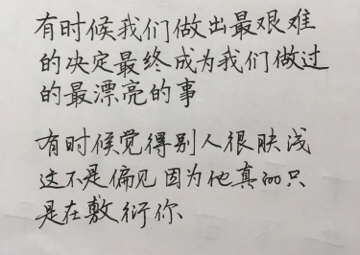 有时候我们做出最艰难
的决定最终成为我们做过
的最漂亮的事
有时候觉得别人很肤浅
这不是偏见因为他真的只
是在敷衍你